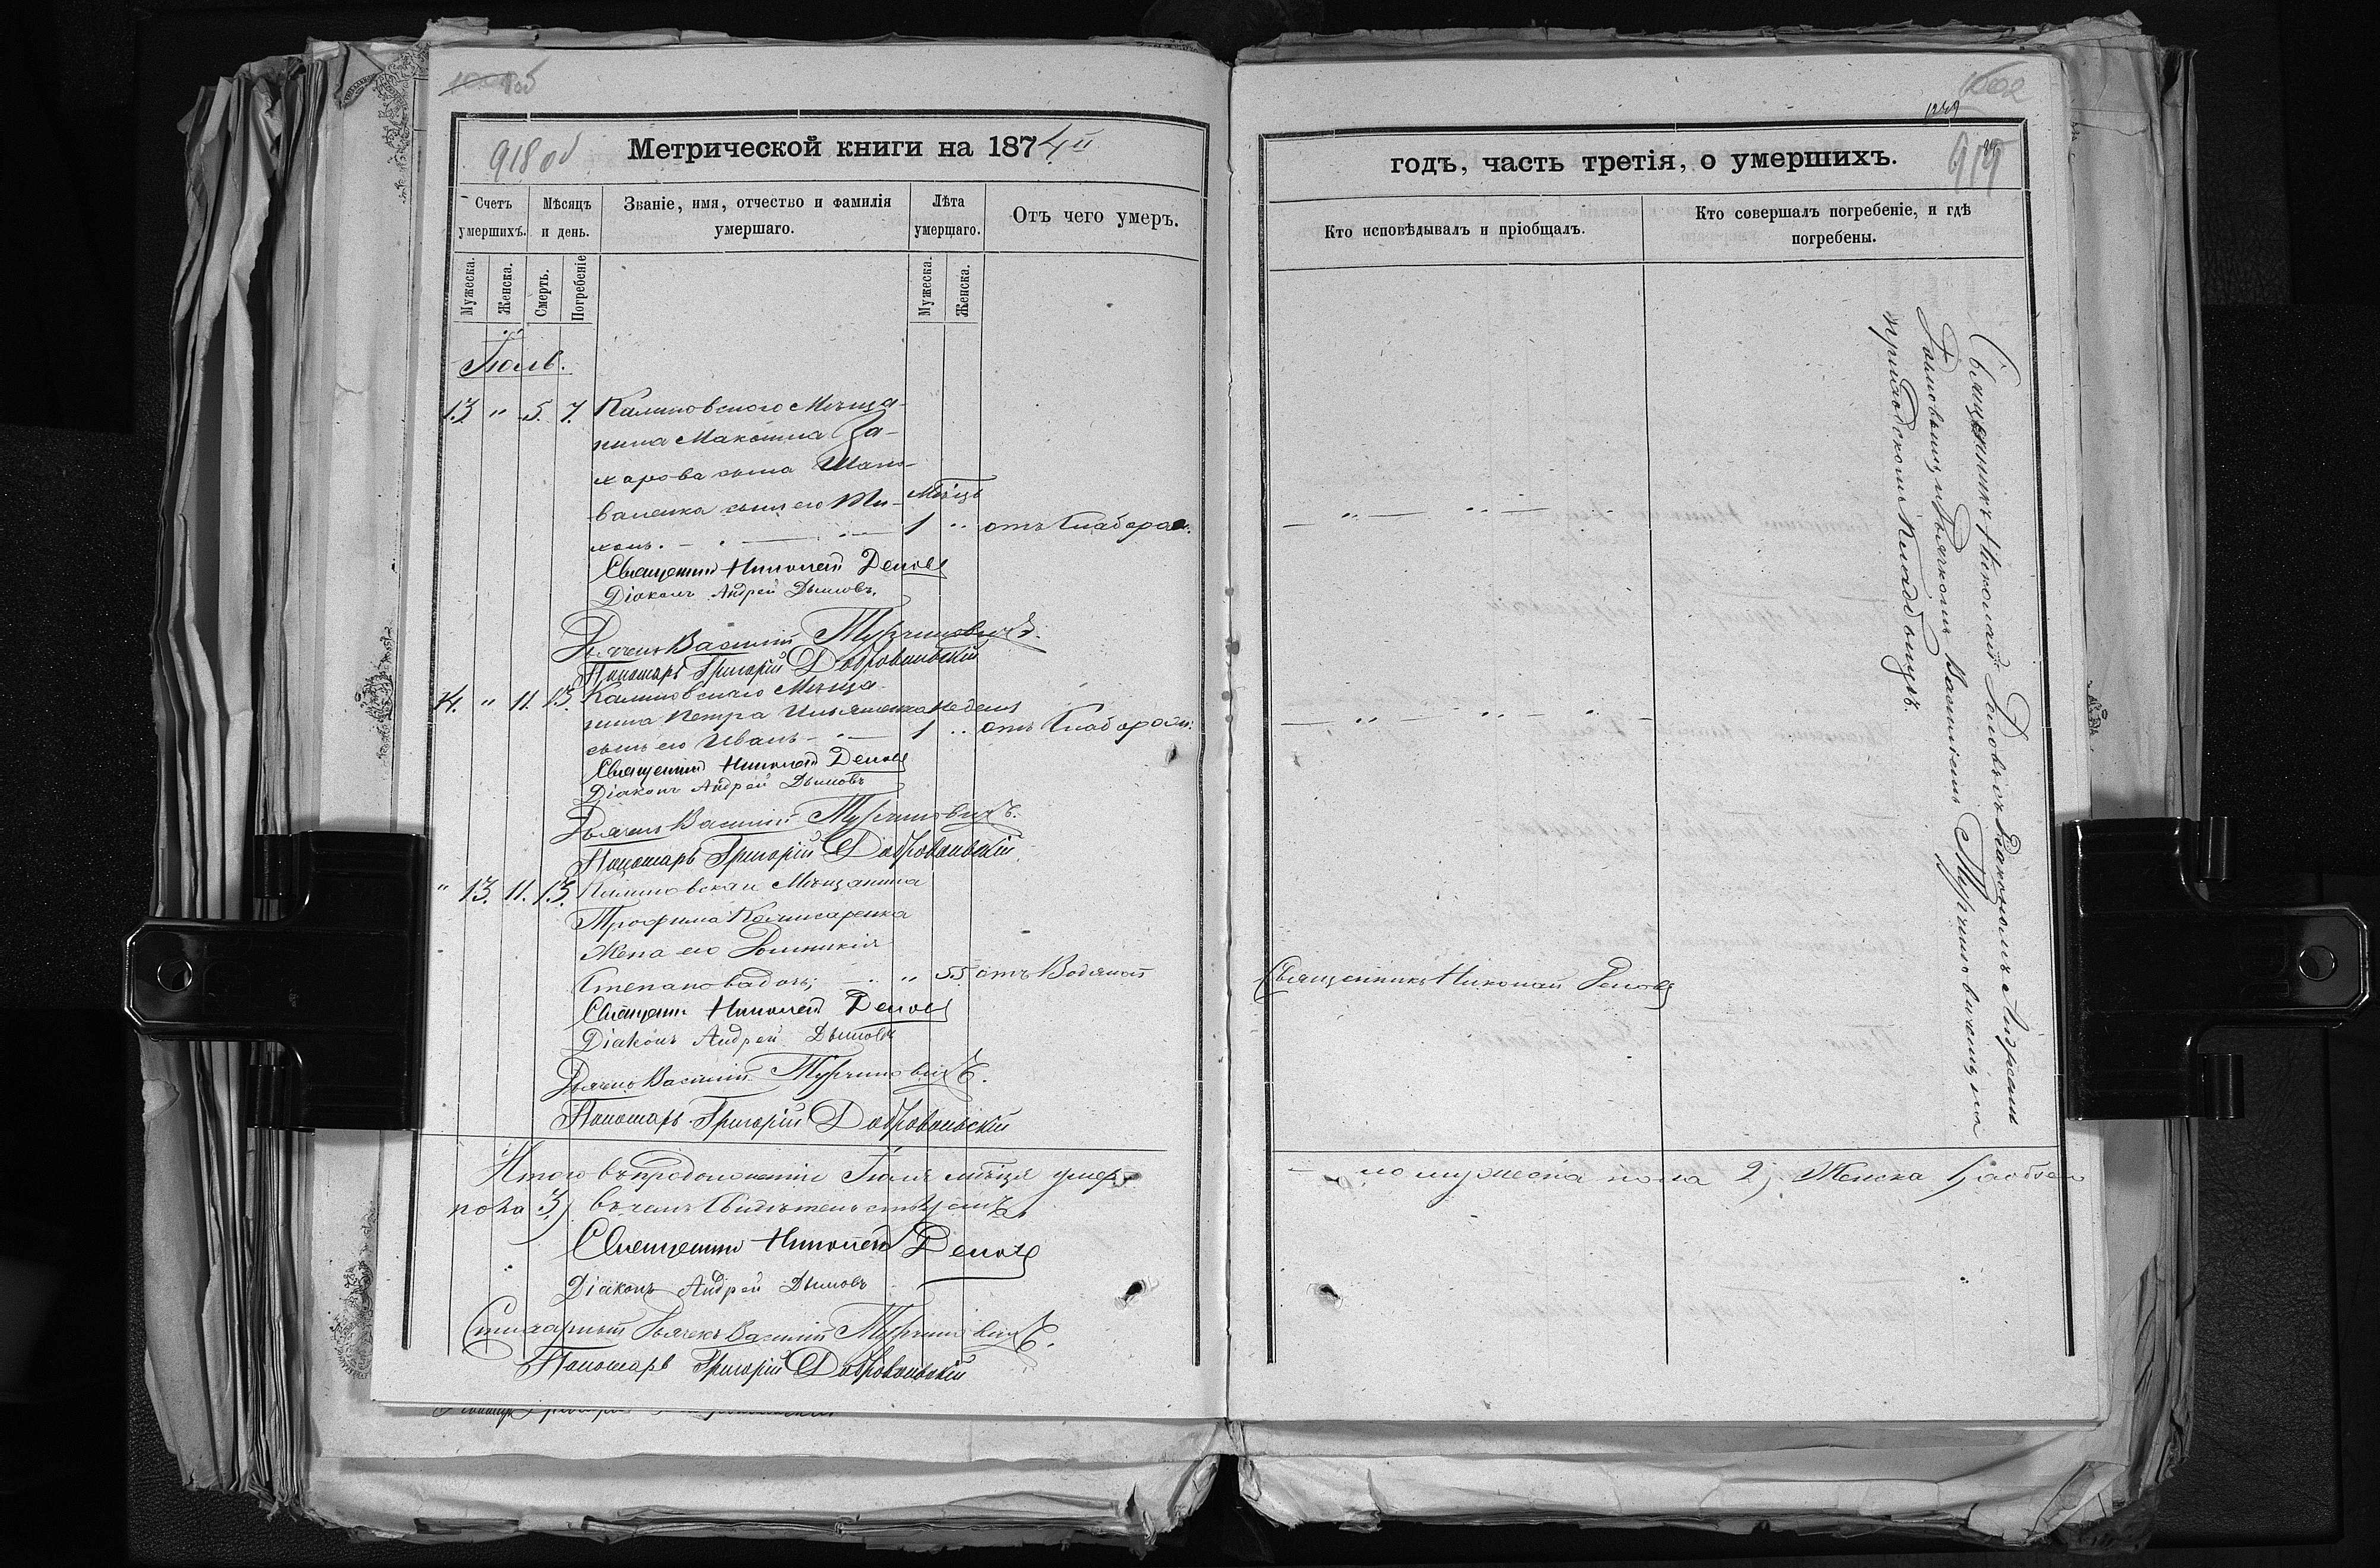 918 об
Метрической книги на 1874й
Счетъ умершихъ.
Мѣсяцъ и день.
Званіе, имя, отчество и фамилія умершаго.
Лѣта умершаго.
Отъ чего умеръ.
Мужеска.
Женска.
Смерть.
Погребеніе
Мужеска.
Женска.
Іюль.
13 " 5. 7. Калиновскаго Мѣща-
нина Максима За-
харова сына
сынъ его Ти- Мѣсяцъ
хонъ. 1 " отъ Слабости.
Священникъ Николай
Діаконъ Андрей Дымовъ
Дьячекъ Василій Турчиновичъ.
Пономарь Григорій Добровольскій
14. " 11. 13. Калиновскаго Мѣща-
нина Петра Ильяшенка Недели
сынъ его Иванъ 1 " отъ Слабости.
Священникъ Николай
Діаконъ Андрей Дымовъ
Дьячекъ Василій Турчиновичъ.
Пономарь Григорій Добровольскій
" 13. 11. 13. Мѣщанина
Трофима
Жена его Домникія
Степанова дочь; " 55 отъ Водяной
Священникъ Николай
Діаконъ Андрей Дымовъ
Дьячекъ Василій Турчиновичъ.
Пономарь Григорій Добровольскій
Итого въ продолженіи Іюля мѣсяца умер-
пола 3) въ чемъ Свидѣтельствуемъ
Священникъ Николай
Діаконъ Андрей Дымовъ
Стихарный Дьячекъ Василій Турчиновичъ.
Пономарь Григорій Добровольскій
1002
годъ, часть третія, о умершихъ.
919
Кто исповѣдывалъ и пріобщалъ.
Кто совершалъ погребеніе, и гдѣ погребены.
Священникъ Николай
ло мужеска пола 2) Женска 1) а обоего
Священникъ Николай съ Діакономъ Андреемъ
Дымовымъ и Дьячкомъ Василіемъ Турчиновичемъ, на
приходскомъ Кладбищѣ.